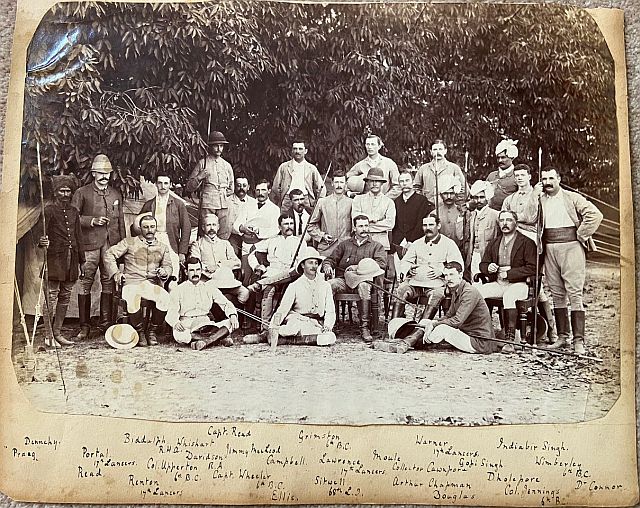 Capt. Read Grimston Warner Indiabir Singh.
Dennehy. Biddulph Wishart 6th B.C. 17th Lancers.
Portal R.H.A. Davidson. Jimmy MacLeod Moule Gopi Singh Wimberley
17th Lancers. Col. Upperton R.A. Campbell. Lawrence, 17th Lancers. Collector Cawnpore 6th B.C.
Read Renton 6th B.C. Capt. Wheeler Sitwell Arthur Chapman Dholepore Dr Connor.
17th Lancers 6th B.C. Ellis. 68th L.I. Douglas Col. Jennings
6th B.C.